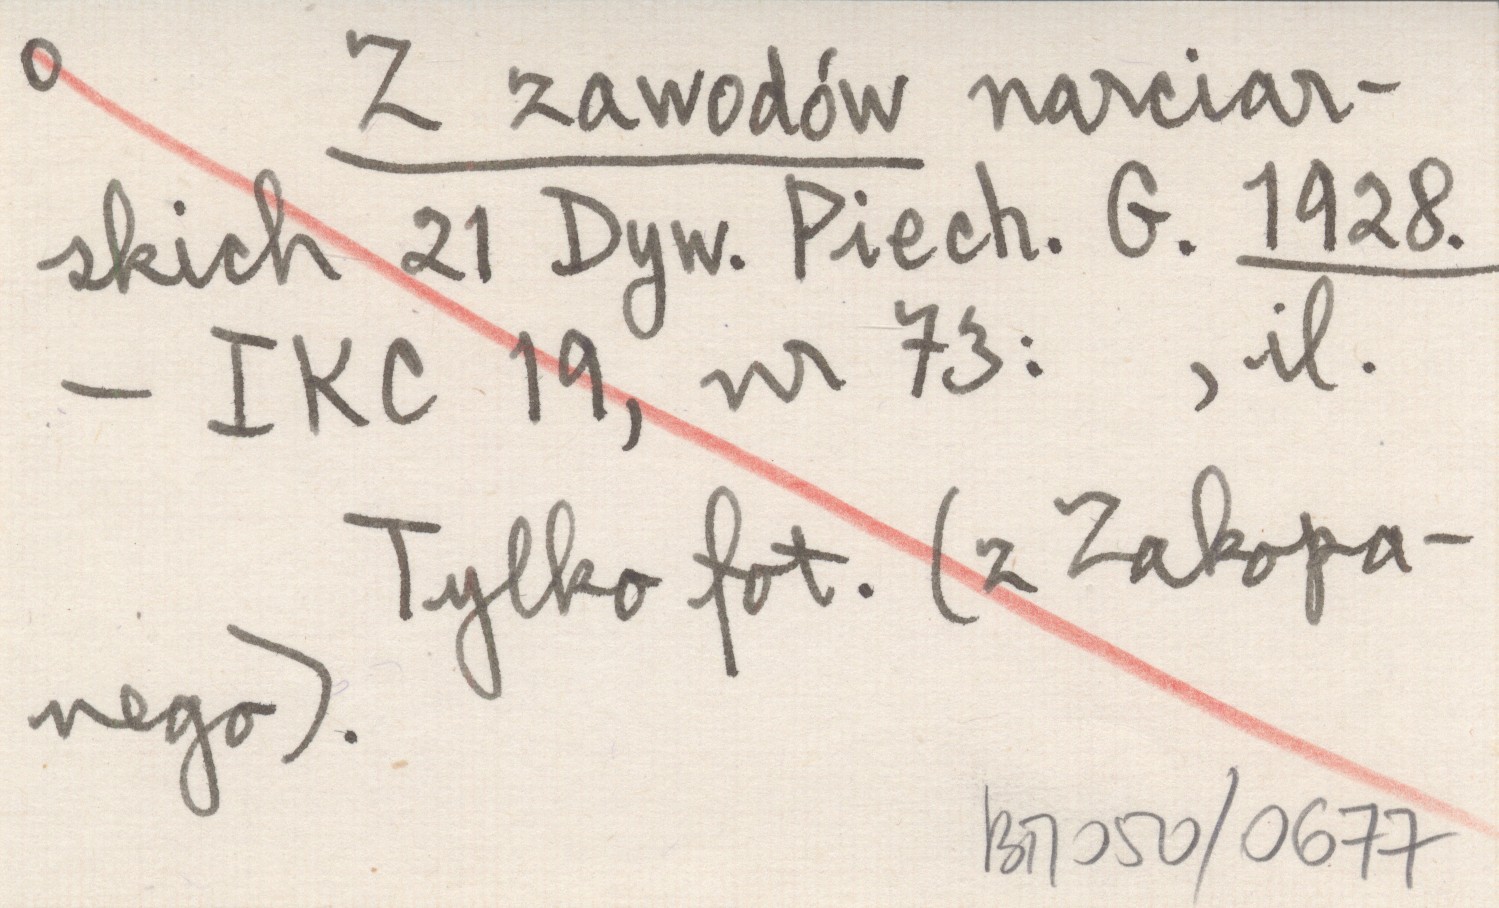 o Z zawodów narciar-
skich 21 Dyw. Piech. G. 1928.
— IKC 19, nr 73: , il.
Tylko fot. (z Zakopa-
nego).
BN 050/0677